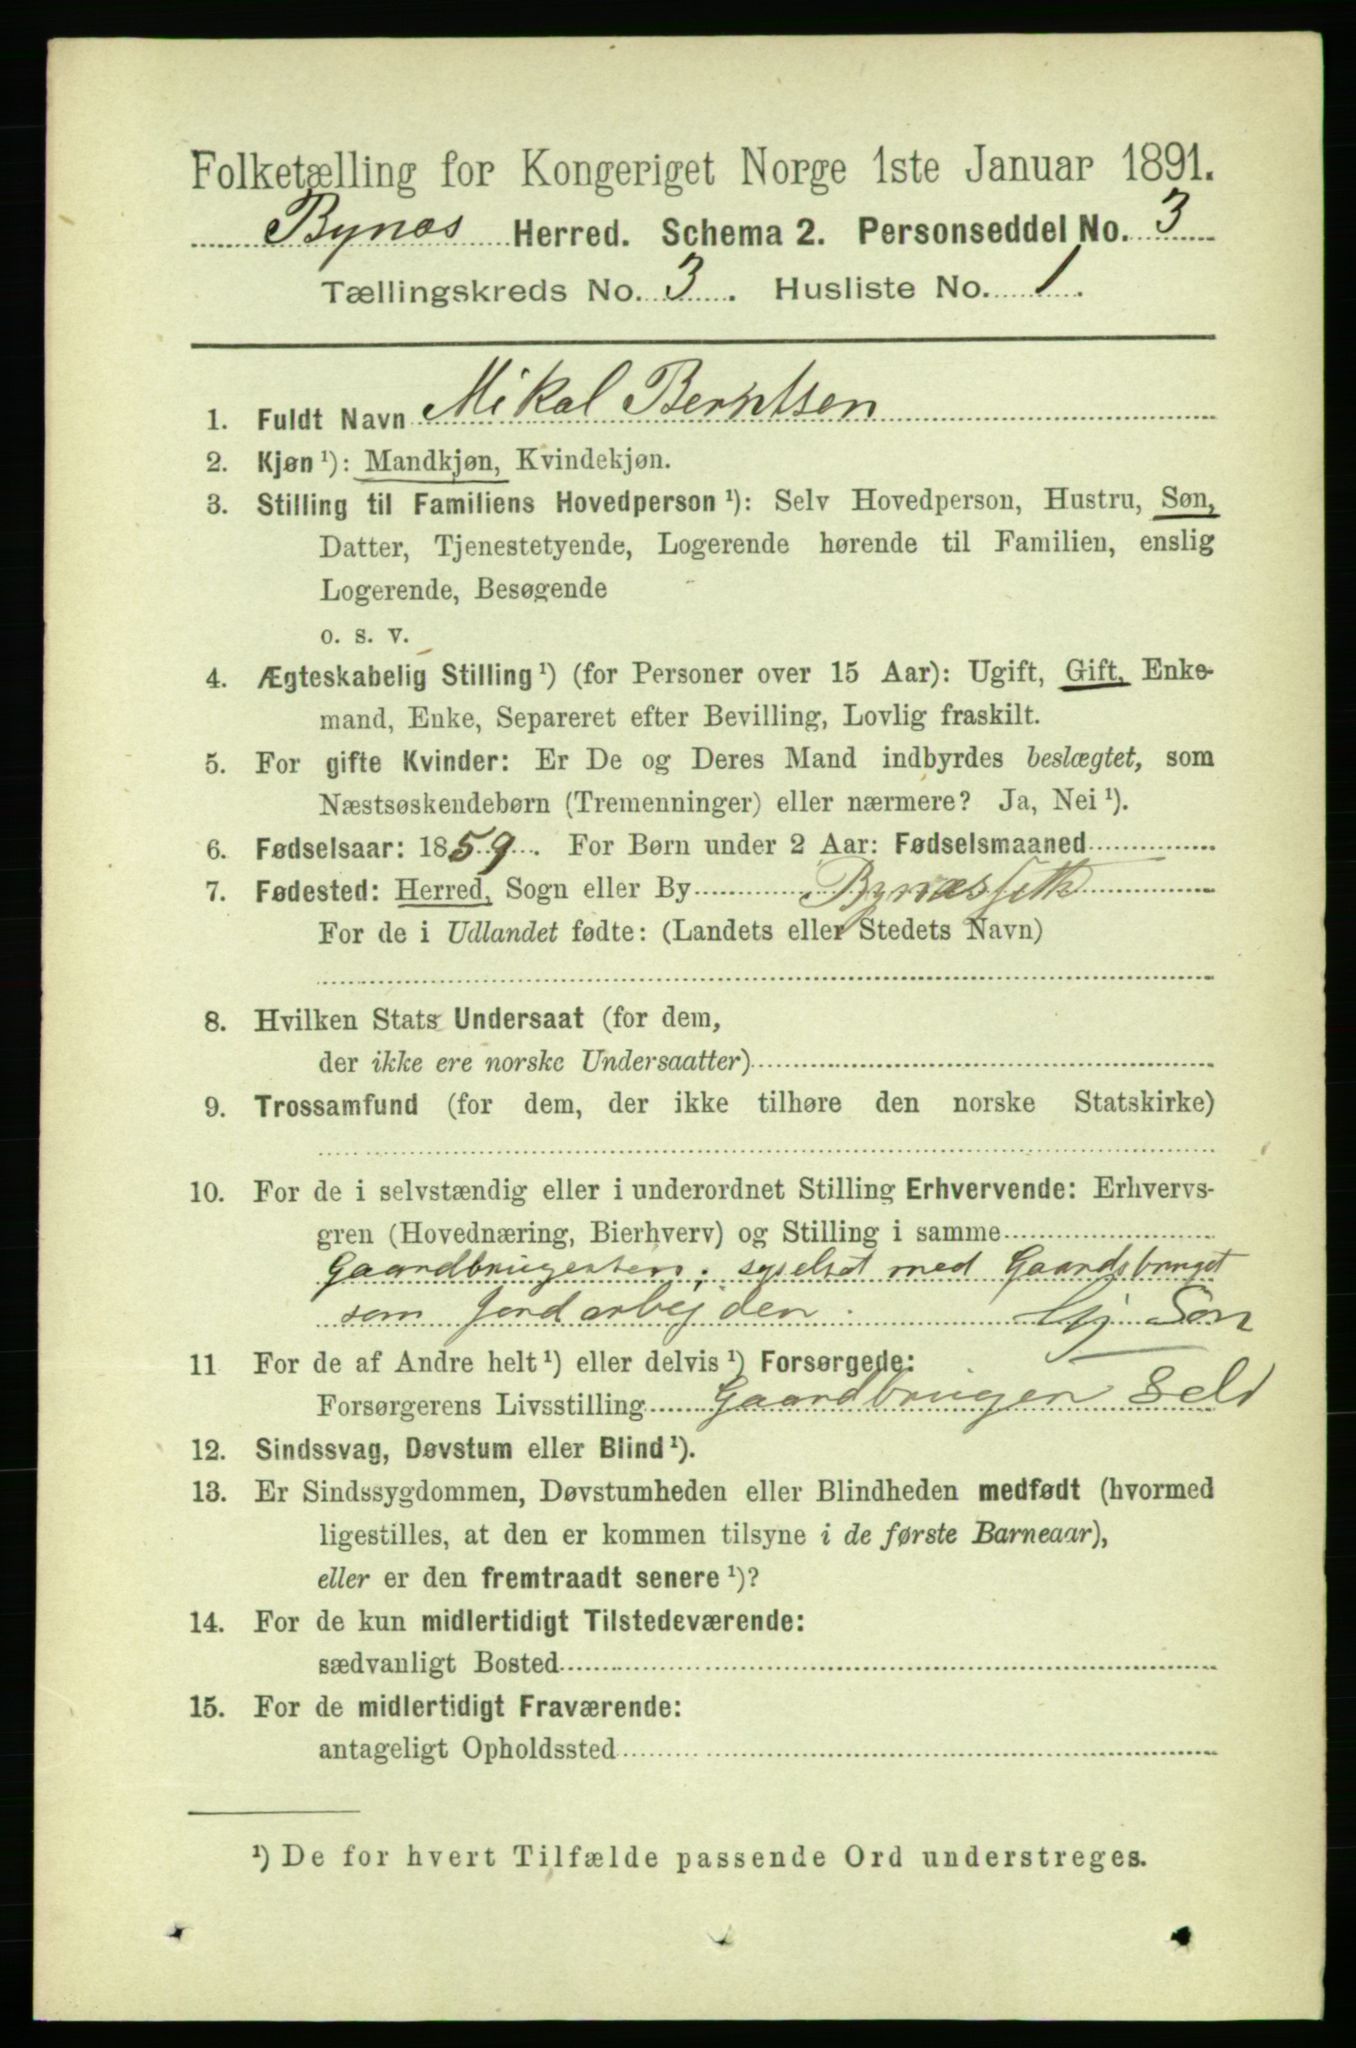 Folketælling for Kongeriget Norge 1ste Januar 1891.
Bynæs Herred. Schema 2. Personseddel No. 3
Tællingskreds No. 3. Husliste No. 1.
1. Fuldt Navn Mikal Berntsen
2. Kjøn ¹): Mandkjøn, Kvindekjøn.
3. Stilling til Familiens Hovedperson ¹): Selv Hovedperson, Hustru, Søn,
Datter, Tjenestetyende, Logerende hørende til Familien, enslig
Logerende, Besøgende
o. s. v.
4. Ægteskabelig Stilling ¹) (for Personer over 15 Aar): Ugift, Gift, Enke-
mand, Enke, Separeret efter Bevilling, Lovlig fraskilt.
5. For gifte Kvinder: Er De og Deres Mand indbyrdes beslægtet, som
Næstsøskendebørn (Tremenninger) eller nærmere? Ja, Nei ¹).
6. Fødselsaar: 1859. For Børn under 2 Aar: Fødselsmaaned
7. Fødested: Herred, Sogn eller By
For de i Udlandet fødte: (Landets eller Stedets Navn)
8. Hvilken Stats Undersaat (for dem,
der ikke ere norske Undersaatter)
9. Trossamfund (for dem, der ikke tilhøre den norske Statskirke)
10. For de i selvstændig eller i underordnet Stilling Erhvervende: Erhvervs-
gren (Hovednæring, Bierhverv) og Stilling i samme
med Gaardsbruget
som Jordarbejden. Søn
11 For de af Andre helt ¹) eller delvis ¹) Forsørgede:
Forsørgerens Livsstilling Gaardbrugen Selv
12. Sindssvag, Døvstum eller Blind ¹).
13. Er Sindssygdommen, Døvstumheden eller Blindheden medfødt (hvormed
ligestilles, at den er kommen tilsyne i de første Barneaar),
eller er den fremtraadt senere ¹)?
14. For de kun midlertidigt Tilstedeværende:
sædvanligt Bosted
15. For de midlertidigt Fraværende:
antageligt Opholdssted
¹) De for hvert Tilfælde passende Ord understreges.